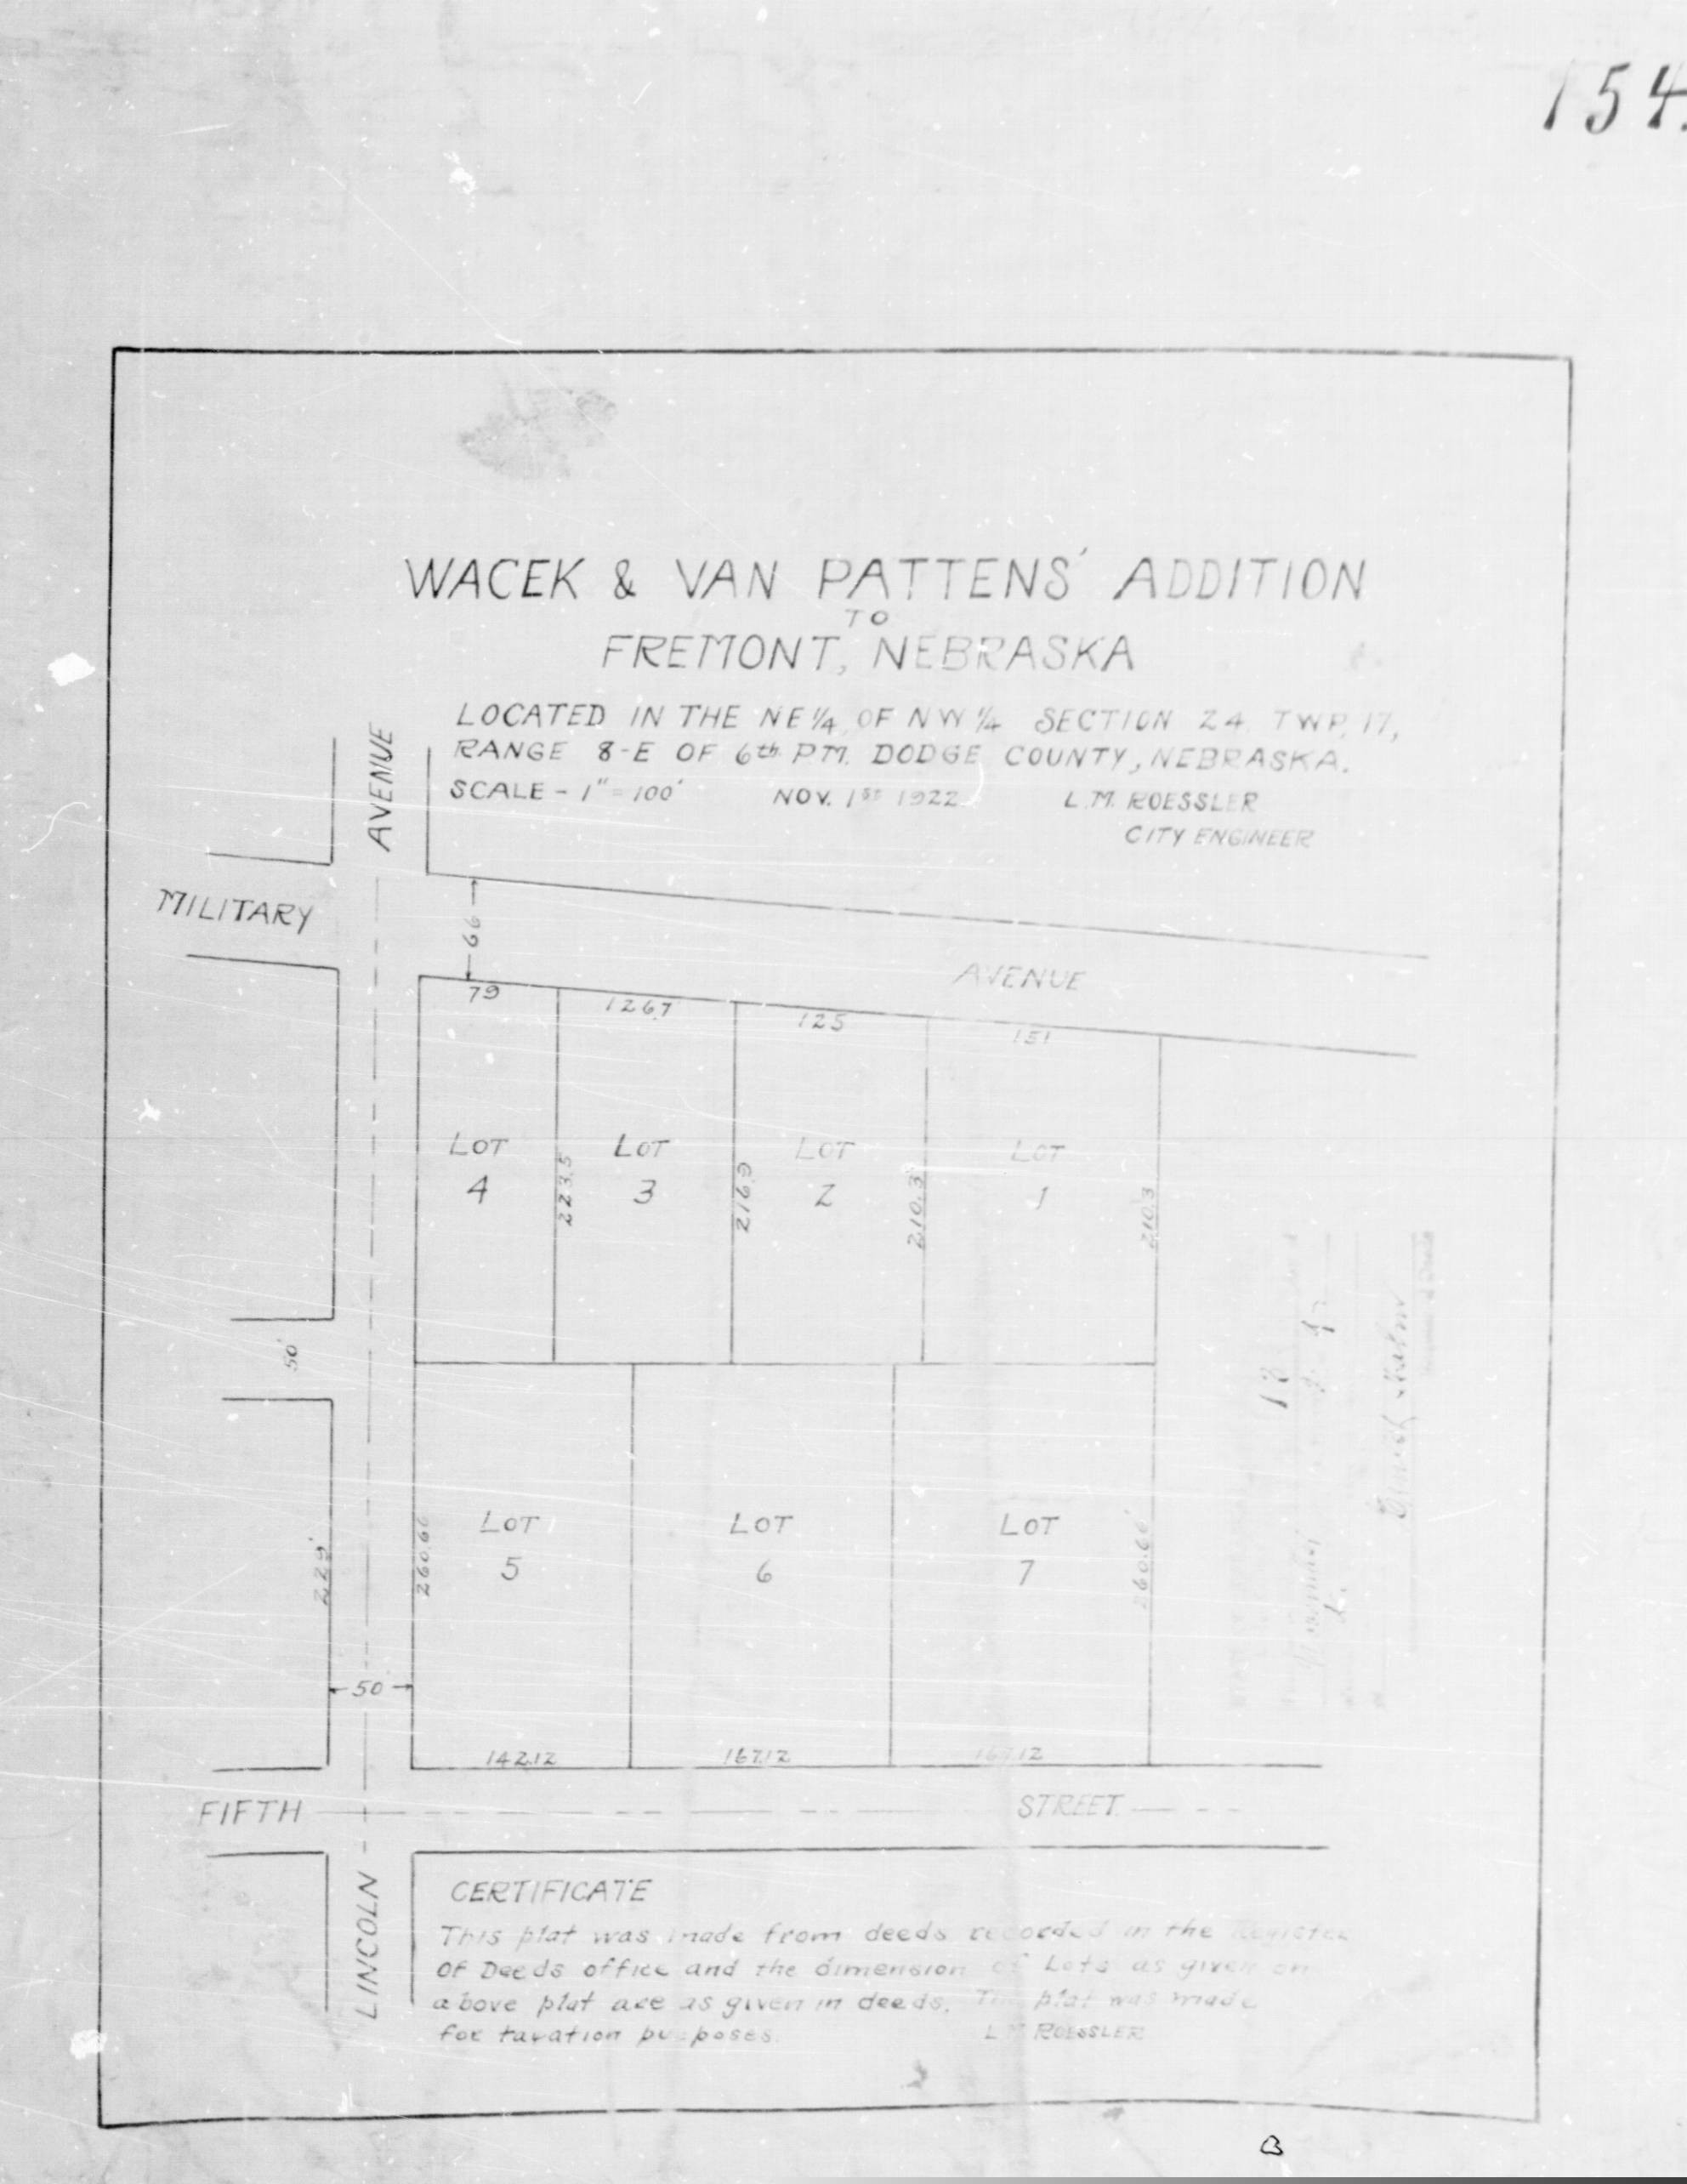 154
WACEK & VAN PATTENS' ADDITION
TO
FREMONT, NEBRASKA
LOCATED IN THE NE 1/4 OF NW 1/4 SECTION 24. TWP. 17,
RANGE 8-E OF 6th P.M. DODGE COUNTY, NEBRASKA.
SCALE - 1" = 100' NOV. 1ST 1922 L.M. ROESSLER
CITY ENGINEER
AVENUE
MILITARY
66
AVENUE
79
126.7
125
151
LOT
4
LOT
3
LOT
2
LOT
1
223.5
216.9
210.3
210.3
50'
LOT
5
LOT
6
LOT
7
229'
260.66
260.66'
50
142.12
167.12
167.12
FIFTH
STREET.
LINCOLN
CERTIFICATE
This plat was made from deeds recorded in the Register
Of Deeds office and the dimension of Lots as given on
above plat are as given in deeds. The plat was made
for taxation purposes. L.M. ROESSLER